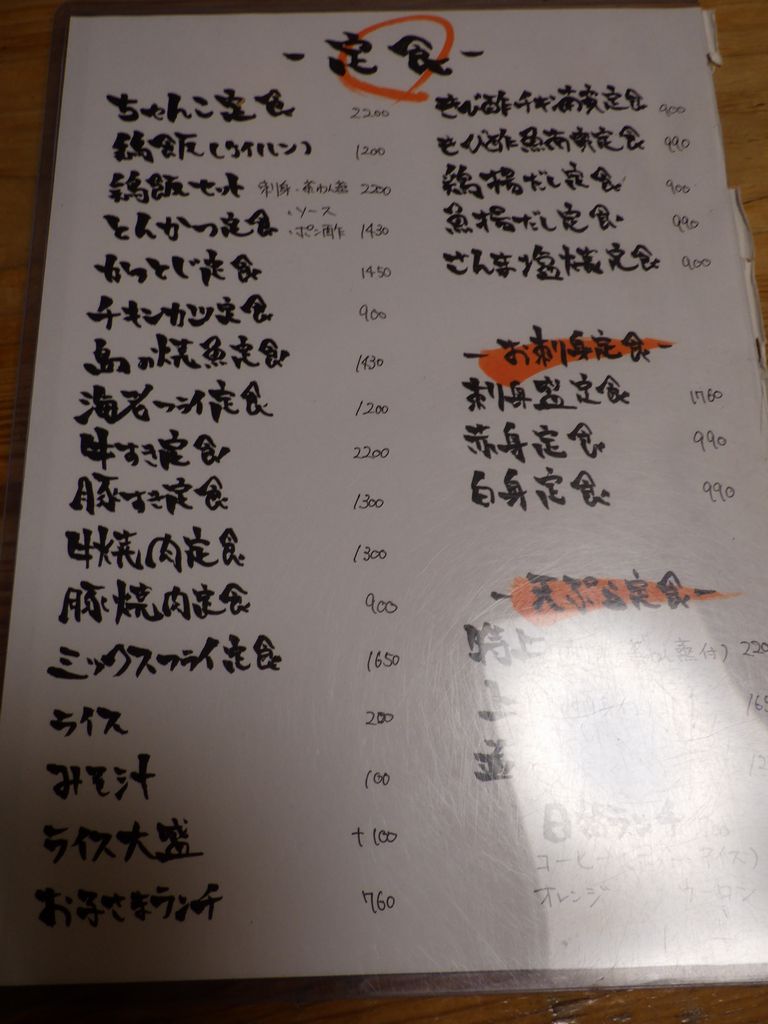 - 定食 -
ちゃんこ定食 2200
鶏飯(ケイハン) 1200
鶏飯セット 刺身・茶わん蒸 2200
とんかつ定食 ・ソース ・ポン酢 1430
かつとじ定食 1450
チキンカツ定食 900
島の焼魚定食 1430
海老フライ定食 1200
牛すき定食 2200
豚すき定食 1300
牛焼肉定食 1300
豚焼肉定食 900
ミックスフライ定食 1650
ライス 200
みそ汁 100
ライス大盛 +100
お子さまランチ 760
きび酢チキン南蛮定食 900
きび酢魚南蛮定食 990
鶏揚だし定食 900
魚揚だし定食 990
さんま塩焼定食 900
- お刺身定食 -
刺身盛定食 1760
赤身定食 990
白身定食 990
- 天ぷら定食 -
特上 蒸付) 220
上 165
並 12
日替ランチ
コーヒー アイス)
オレンジ ウーロン